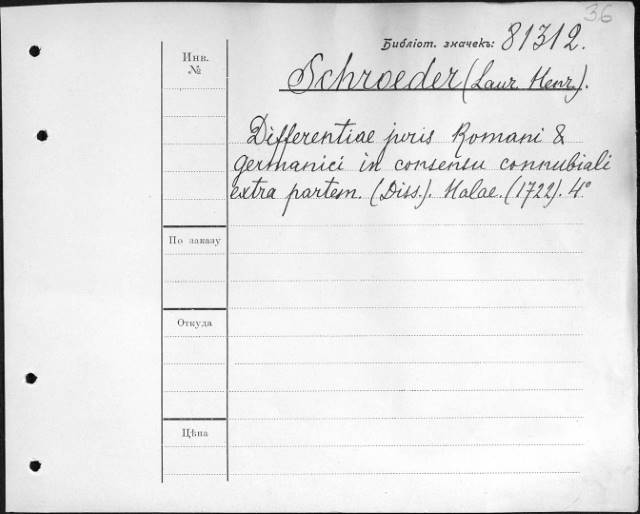 36
Библіот. значекъ: 81312.
Инв.
№
Schroeder (Laur. Henr.).
Differentiae juris Romani &
germanici in consensu connubiali
extra partem. (Diss.). Halae. (1722). 4°
По заказу
Откуда
Цѣна